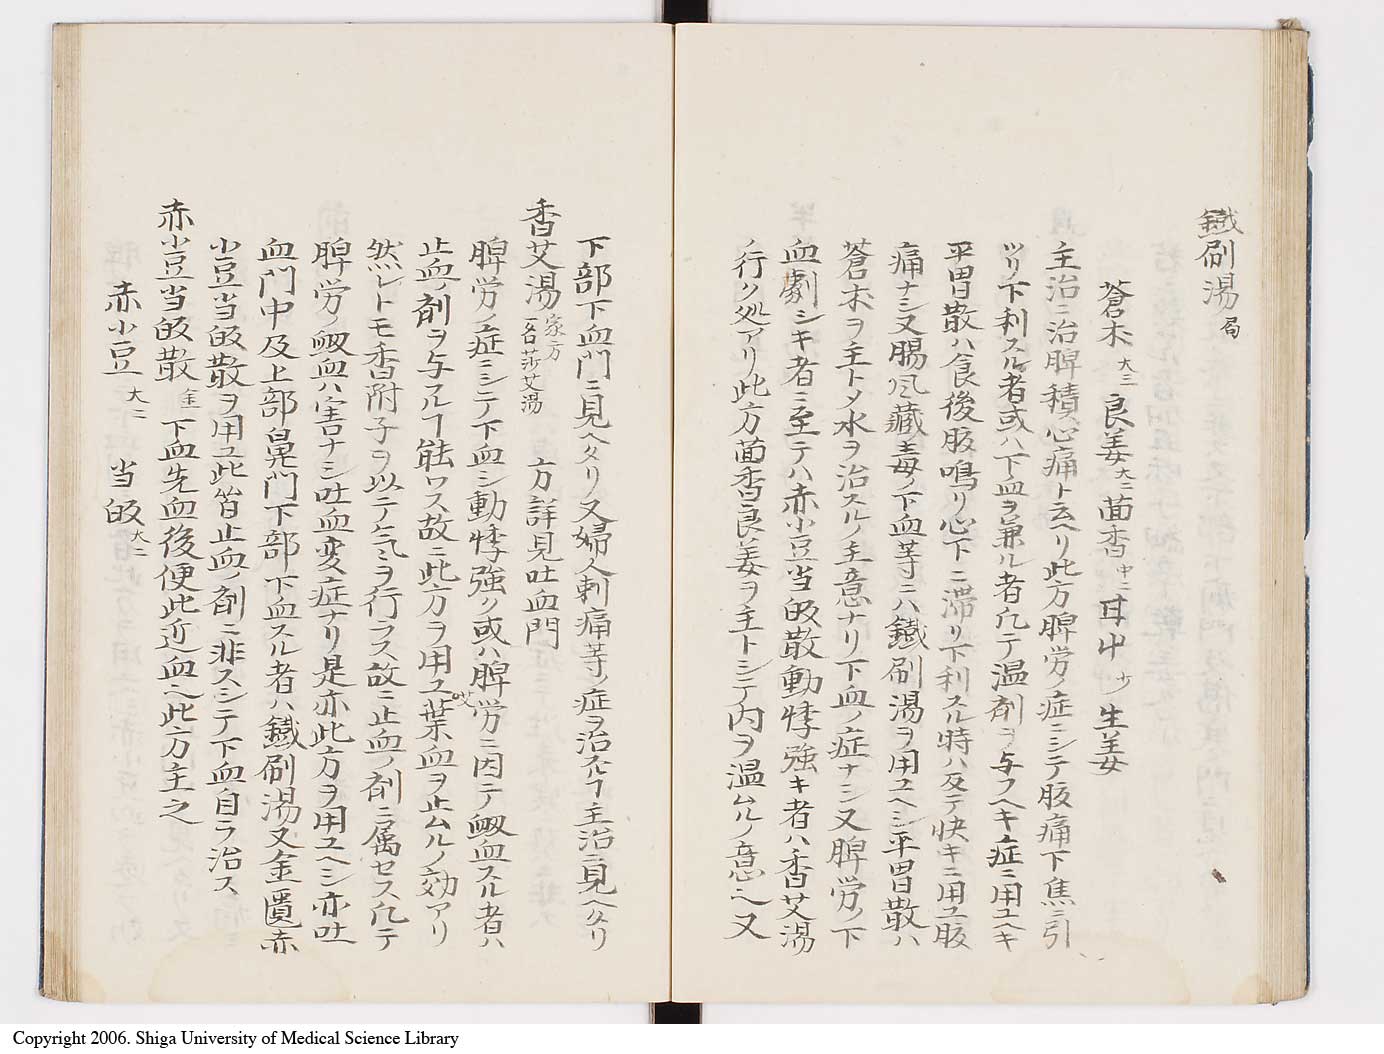 鐵刷湯 局
蒼朮 大三 良姜 大二 茴香 中二 甘艸 少 生姜
主治ニ治脾積心痛ト云ヘリ此方脾労ノ症ニシテ腹痛下焦ニ引
ツリ下利スル者或ハ下血ヲ兼ル者凡テ温剤ヲ与フヘキ症ニ用ユヘキ
平胃散ハ食後腹鳴リ心下ニ滞リ下利スル時ハ反テ快キニ用ユ腹
痛ナシ又腸風藏毒ノ下血等ニハ鐵刷湯ヲ用ユヘシ平胃散ハ
蒼朮ヲ主トメ水ヲ治スルノ主意ナリ下血ノ症ナシ又脾労ノ下
血劇シキ者ニ至テハ赤小豆当皈散動悸強キ者ハ香艾湯
行ク処アリ此方茴香良姜ヲ主トシテ内ヲ温ムルノ意ヘ又
下部下血門ニ見ヘタリ又婦人刺痛等ノ症ヲ治スルヿ主治ニ見ヘタリ
香艾湯 家方 一名莎艾湯 方詳見吐血門
脾労ノ症ニシテ下血シ動悸強ク或ハ脾労ニ因テ衂血スル者ハ
止血ノ剤ヲ与スルヿ能ワス故ニ此方ヲ用ユ葉血ヲ止ムルノ効アリ
然レトモ香附子ヲ以テ气ヲ行ラス故ニ止血ノ剤ニ属セス凡テ
脾労ノ衂血ハ害ナシ吐血変症ナリ是亦此方ヲ用ユヘシ亦吐
血門中及上部鼻門下部下血スル者ハ鐵刷湯又金匱赤
小豆当皈散ヲ用ユ此皆止血ノ剤ニ非スシテ下血自ラ治ス
赤小豆当皈散 金 下血先血後便此近血ヘ此方主之
赤小豆 大二 当皈 大二
Copyright 2006. Shiga University of Medical Science Library